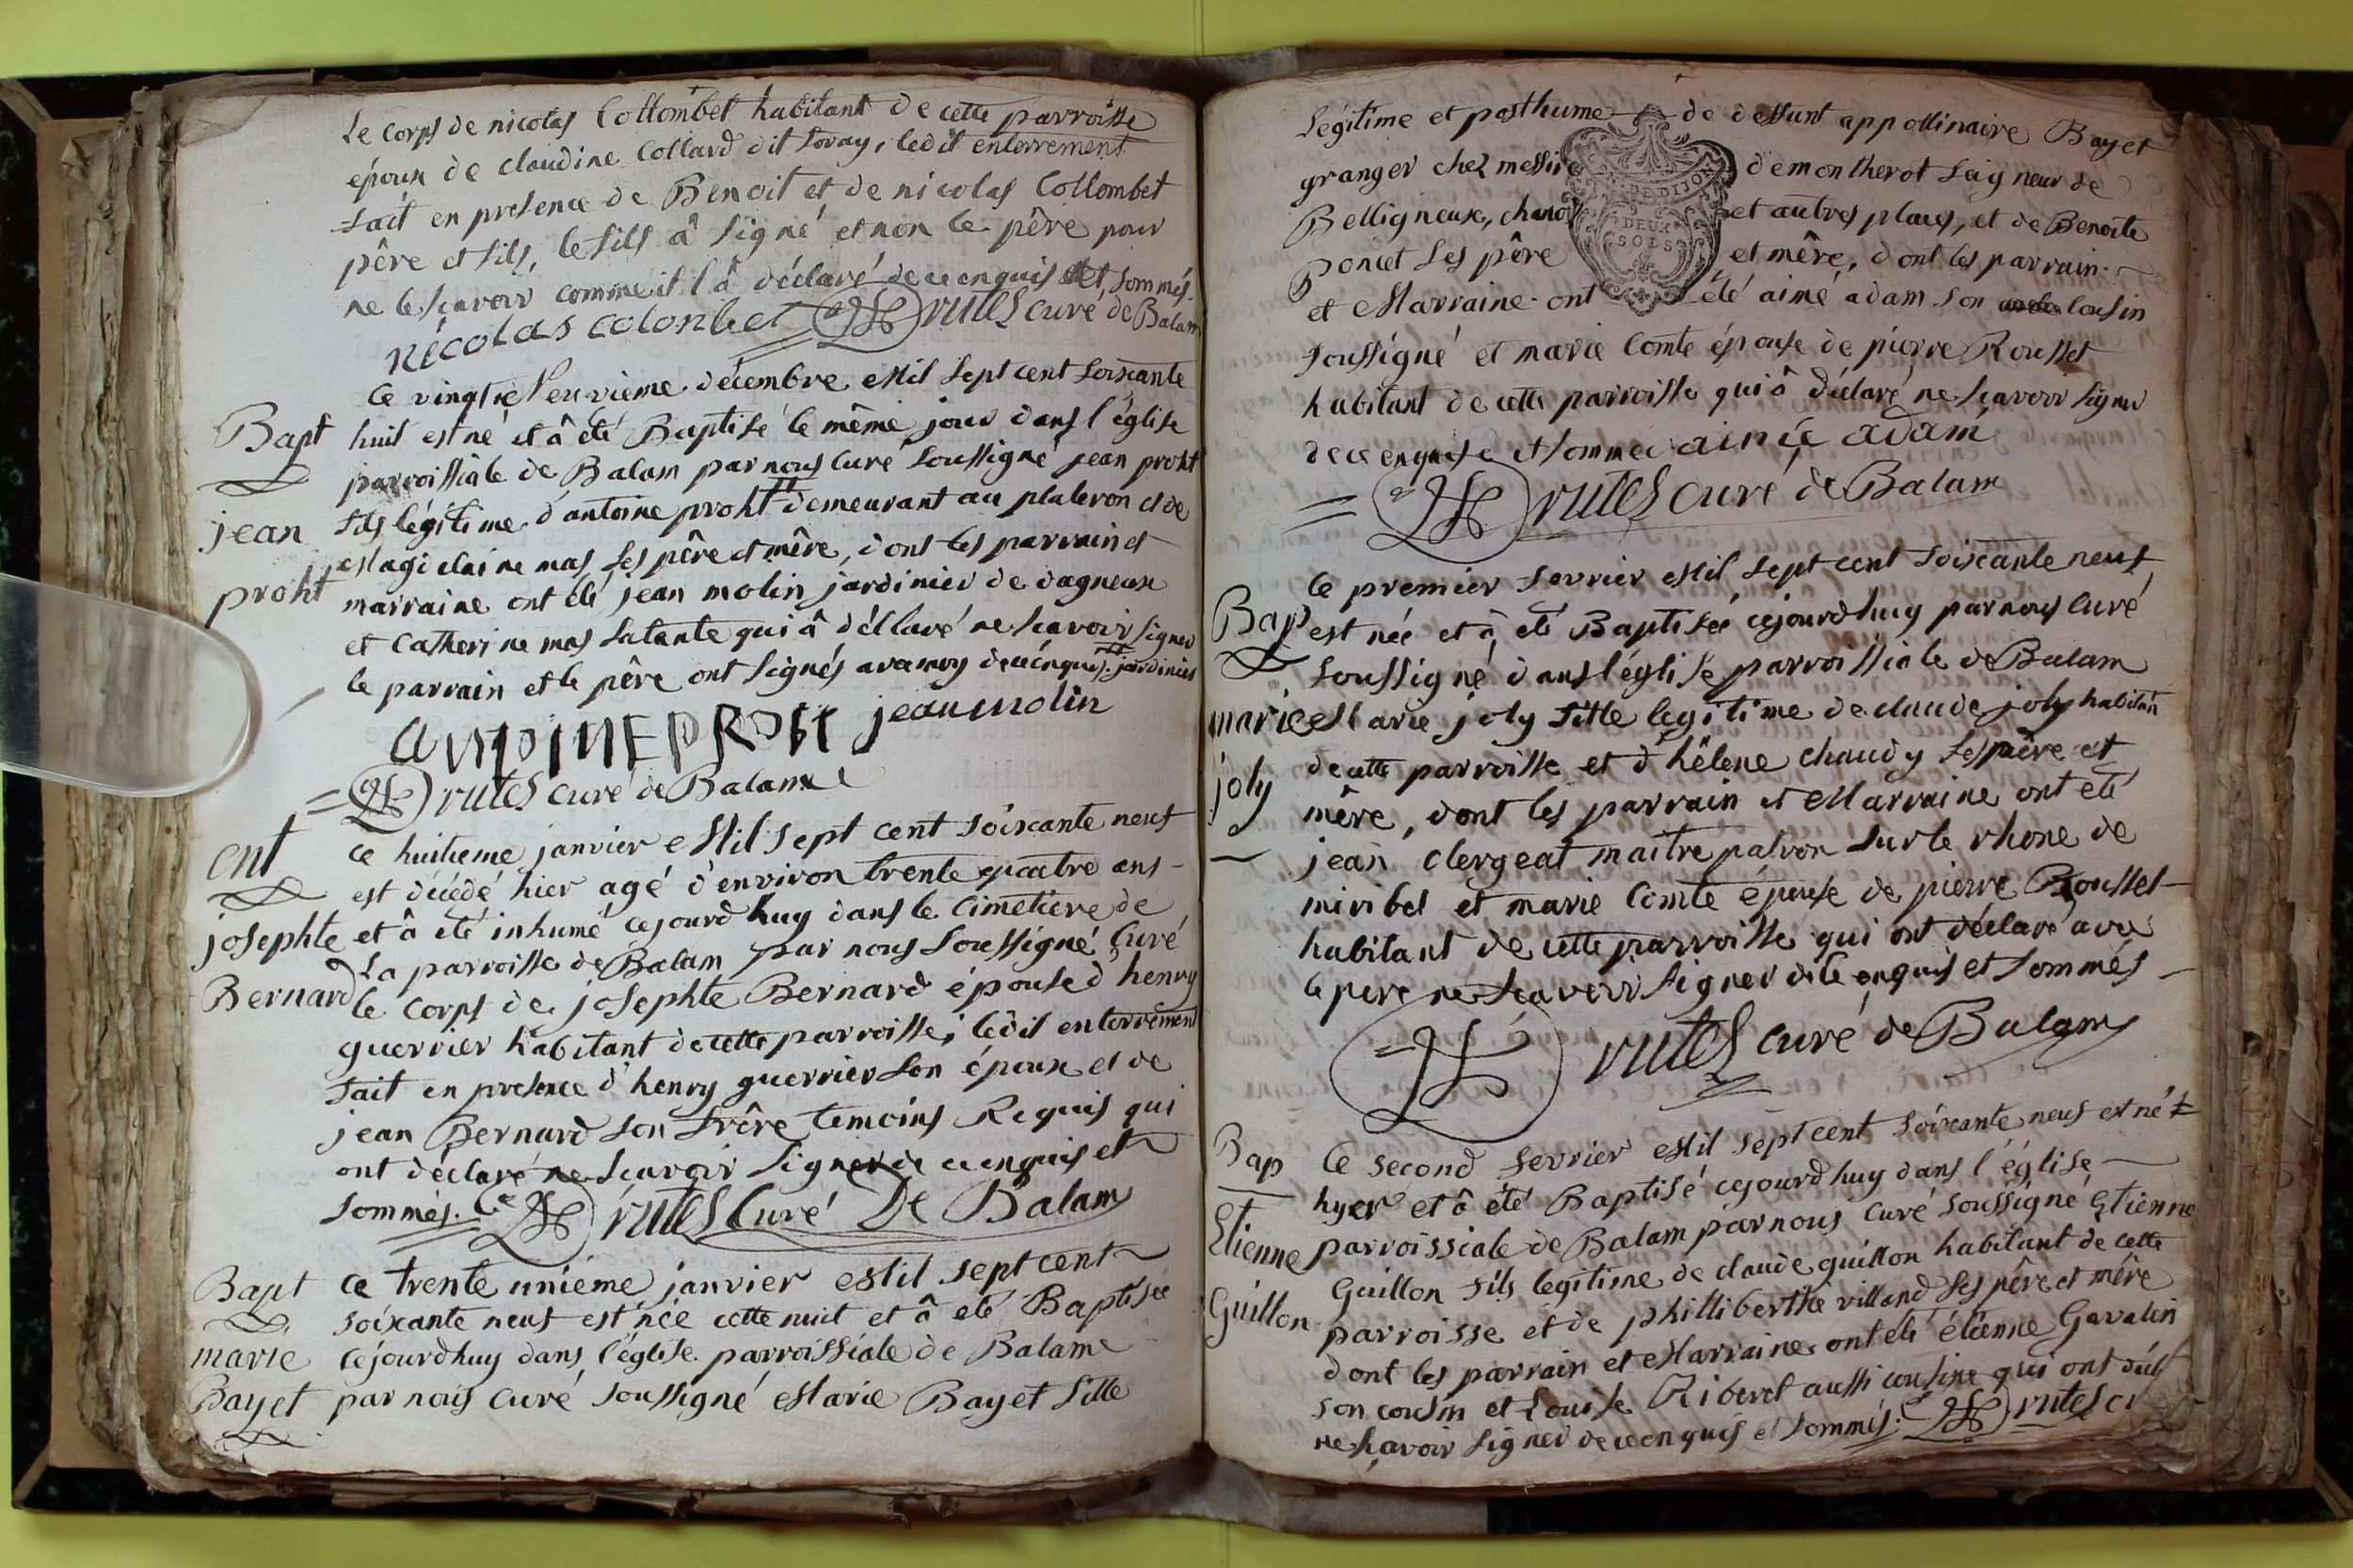 Le corps de nicolas Collombet habitant de cette parroisse
époux de claudine Collard dit ledit enterrement
fait en presence de Benoit et de nicolas Collombet
père et fils, le fils â signé et non le père pour
ne le sçavoir comme il l'â déclaré de ce enquis et sommés.
nicolas colonbet Drutes curé de Balam
Ce vingt décembre Mil sept cent soixante
Bapt huit est né et â été Baptisé le même jour dans l'église
parroissiale de Balam par nous Curé soussigné jean proht
jean fils légitime d'antoine proht demeurant au plateron et de
claine mas ses père et mère, dont les parrain et
proht marraine ont été jean molin jardinier de dagneux
et Catherine mas sa tante qui â déclaré ne sçavoir signer
le parrain et le père ont signés avec moy de ce enquis. jardinier
antoine proht jean molin
Drutes curé de Balam
ent Ce huitieme janvier Mil sept cent soixante neuf
est décédé hier agé d'environ trente quatre ans
josephte et â été inhumé cejourdhuy dans le Cimetiere de
la parroisse de Balam par nous soussigné Curé
Bernard le corps de josephte Bernard épouse d'henry
guerrier habitant de cette parroisse, ledit enterrement
fait en presence d'henry guerrier son époux et de
jean Bernard son frère temoins Requis qui
ont déclaré ne sçavoir signer de ce enquis et
sommés. Drutes Curé De Balam
Bapt Ce trente unième janvier Mil sept cent
soixante neuf est née cette nuit et â été Baptisée
marie cejourdhuy dans l'église parroissiale de Balame
Bayet par nous Curé soussigné Marie Bayet fille
Légitime et posthume de deffunt appollinaire Bayet
granger chez messire demontherot seigneur de
Belligneux, et autres places, et de Benoite
Poncet ses père et mère, dont les parrain
et Marraine ont été aimé adam son cousin
GN. DE DIJON
DEUX
SOLS
soussigné et marie Comte épouse de pierre Rousset
habitant de cette parroisse qui â déclaré ne sçavoir signer
de ce enquise et sommée aimé adam
Drutes curé de Balam
Ce premier fevrier Mil sept cent soixante neuf
Bap est née et â été Baptisée cejourdhuy par nous Curé
soussigné dans l'église parroissiale de Balam
marie Marie joly fille legitime de claude joly habitan
joly de cette parroisse et d'hélene chaudy ses père et
mère, dont les parrain et Marraine ont été
jean Clergeat maitre patron sur le rhone de
miribel et marie Comte épouse de pierre Rousset
habitant de cette parroisse qui ont déclaré avec
le pere ne sçavoir signer de ce enquis et sommés
Drutes curé de Balam
Bap Ce second fevrier Mil sept cent soixante neuf est né
hyer et â été Baptisé cejourdhuy dans l'église
Etienne parroissiale de Balam par nous Curé soussigné Etienne
Guillon Guillon fils legitime de claude guillon habitant de cette
parroisse et de philliberthe villand ses père et mère
dont les parrain et Marraine ont été étienne Gavalin
son cousin et Louise Riberet aussi cousine qui ont
ne sçavoir signer de ce enquis et sommés. Drutes